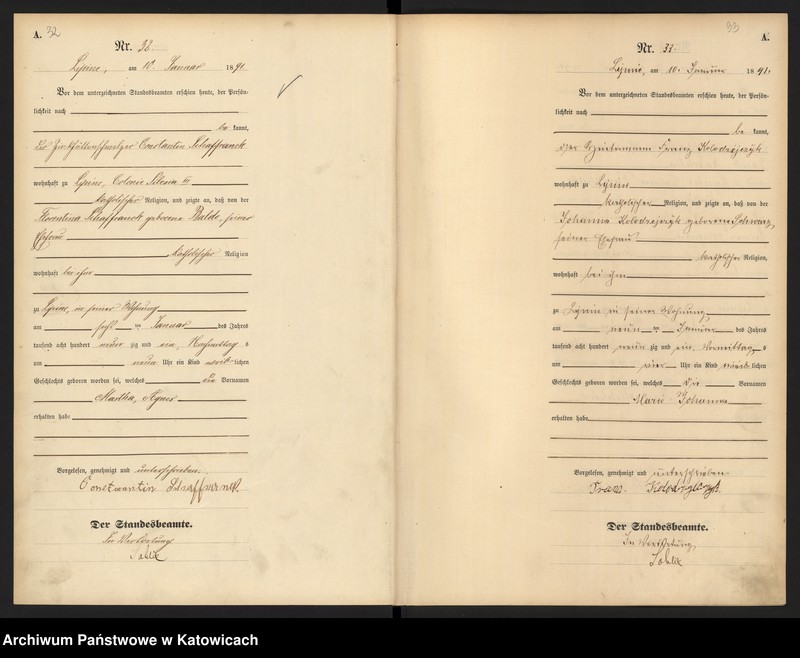 A. 32
Nr. 32.
Lipine, am 10. Januar 1891.
Vor dem unterzeichneten Standesbeamten erschien heute, der Persön-
lichkeit nach
be kannt,
der Zinkhüttenschmelzer Constantin Schaffranek
wohnhaft zu Lipine, Colonie Silesia III
katholischer Religion, und zeigte an, daß von der
Florentina Schaffranek geborene Baldo, seiner
Ehefrau
katholischer Religion
wohnhaft bei ihm
zu Lipine, in seiner Wohnung
am sechs ten Januar des Jahres
tausend acht hundert neun zig und ein, Nachmittag s
um neun Uhr ein Kind weib lichen
Geschlechts geboren worden sei, welches die Vornamen
Martha, Agnes
erhalten habe
Vorgelesen, genehmigt und unterschrieben.
Constantin Schaffranek.
Der Standesbeamte.
In Vertretung
33
A.
Nr. 33.
Lipine, am 10. Januar 1891.
Vor dem unterzeichneten Standesbeamten erschien heute, der Persön-
lichkeit nach
be kannt,
Franz Kolodziejczyk
wohnhaft zu Lipine
katholischer Religion, und zeigte an, daß von der
Johanna Kolodziejczyk geborene Schwarz,
seiner Ehefrau
katholischer Religion,
wohnhaft bei ihm
zu Lipine in seiner Wohnung
am neun ten Januar des Jahres
tausend acht hundert neun zig und ein, Vormittag s
um vier Uhr ein Kind weib lichen
Geschlechts geboren worden sei, welches die Vornamen
Marie Johanna
erhalten habe
Vorgelesen, genehmigt und unterschrieben
Franz Kolodziejczyk.
Der Standesbeamte.
In Vertretung,
Archiwum Państwowe w Katowicach